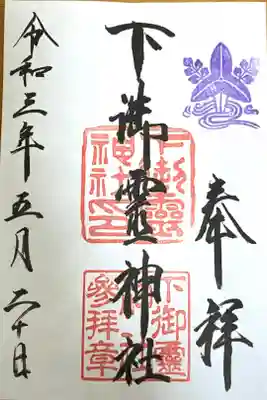 奉拝
下御霊神社
下御靈
神社印
下御靈
神社
參拝章
令和三年五月二十日